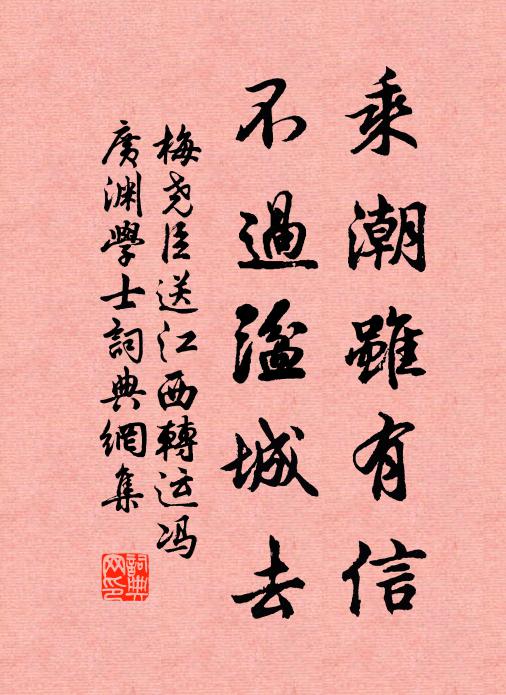 乘潮雖有信
不過湓城去
梅尧臣送江西轉运冯
廣渊學士詞典網集
詞典网印